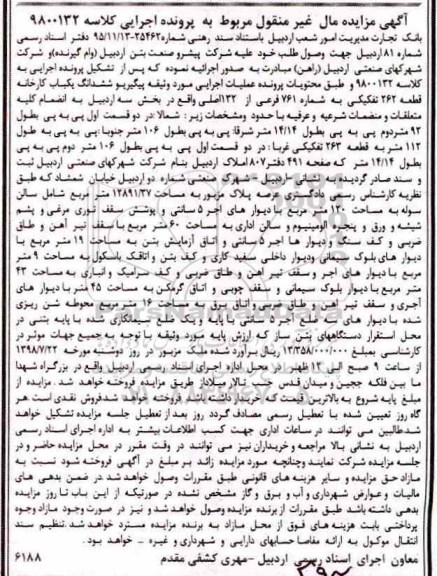 آگهی مزایده مال غیر منقول مربوط به پرونده اجرایی کلاسه ۹۸۰۰۱۳۲
بانک تجارت مدیریت امور شعب اردبیل باستناد سند رهنی شماره ۲۵۴۶۲-۹۵/۱۱/۱۳ دفتر اسناد رسمی
شماره ۸۱ اردبیل جهت وصول طلب خود علیه شرکت پیشرو صنعت بتن آردبیل (وام گیرنده) و شرکت
شهرکهای صنعتی اردبیل (راهن) مبادرت به صدور اجرائیه نموده که پس از تشکیل پرونده اجرایی به
کلاسه ۹۸۰۰۱۳۲ و طبق محتویات پرونده عملیات اجرایی مورد وثیقه پیگیر و ششدانگ یکباب کارخانه
قطعه ۲۶۲ تفکیکی به شماره ۷۶۱ فرعی از ۱۳۲ اصلی واقع در بخش سه اردبیل به انضمام کلیه
متعلقات و منضمات شرعیه و عرفیه با حدود ومشخصات زیر: شمالا: در دو قسمت اول پی به پی بطول
۹۲ متر دوم پی به پی بطول ۱۴/۱۴ متر شرقا: پی به پی بطول ۱۰۶ متر جنوبا: پی به پی به طول
۱۱۲ متر به قطعه ۲۶۳ تفکیکی غربا: در دو قسمت اول پی به پی بطول ۱۰۶ متر دوم پی به پی
بطول ۱۴/۱۴ متر که صفحه ۴۹۱ دفتر ۸۰۷ املاک اردبیل بنام شرکت شهرکهای صنعتی اردبیل ثبت
و سند صادر گردیده به نشانی -اردبیل -شهرک صنعتی شماره دو اردبیل خیابان شمشاد که طبق
نظریه کارشناس رسمی دادگستری عرصه پلاک مزبور به مساحت ۱۲۸۹۱/۳۷ متر مربع شامل سالن
سوله به مساحت متر مربع با دیوار های اجر ۵ سانتی و پوشش سقف توری مرغی و پشم
شیشه و ورق و پنجره الومینیوم و سالن اداری به مساحت ۶۰ متر مربع با سقف تیر آهن و طاق
ضربی و کف سنگ و دیوار ها اجر ۵ سانتی و اتاق آزمایش بتن به مساحت ۱۹ متر مربع با
دیوار های بلوک سیمانی ودیوار داخلی سفید کاری و کف بتن و اتاقک باسکول به مساحت ۹ متر
مربع با دیوار های اجر و سقف تیر اهن و طاق ضربی و کف سرامیک و انباری به مساحت ۴۳
متر مربع با دیوار بلوک سیمانی و سقف چوبی و اتاق گرمکن به مساحت ۴۵ متر با دیوار های
آجری و سقف تیر اهن و طاق ضربی و اتاق برق به مساحت ۱۶ متر مربع محوطه شن ریزی
شده با دیوار های سه ضلع اجر ۵ سانتی با پایه و یک ضلع سیمانکاری شده با پایه بتنی در
محل استقرار دستگاههای بتن ساز که ارزش پایه مورد وثیقه با توجه به جمیع جهات موثر در
کارشناسی بمبلغ ۱۳/۳۵۸/۰۰۰/۰۰۰ ریال برآورد شده ملک مزبور در روز دوشنبه مورخه ۱۳۹۸/۷/۲۲
از ساعت ۹ صبح الی ۱۲ ظهر در محل اداره اجرای اسناد رسمی اردبیل واقع در بزرگراه شهدا
ما بین فلکه ججین و میدان قدس جنب تالار میلاد از طریق مزایده فروخته خواهد شد. مزایده از
مبلغ پایه شروع به بالاترین قیمت که خریدار داشته باشد فروخته خواهد شد فروش نقدی است هر
گاه روز تعیین شده با تعطیل رسمی مصادف گردد روز بعد از تعطیل جلسه مزایده تشکیل خواهد
شد طالبین می توانند در ساعات اداری جهت کسب اطلاعات بیشتر به اداره اجرای اسناد رسمی
اردبیل به نشانی بالا مراجعه و خریداران نیز می توانند در وقت مقرر در محل مزایده حاضر و در
جلسه مزایده شرکت نمایند وچنانچه مورد مزایده زائد بر مبلغ در آگهی فروخته شود نسبت به
مازاد حق مزایده و سایر هزینه های قانونی طبق مقررات وصول خواهد شد در ضمن بدهی های
مالیات و عوارض شهرداری و آب و برق و گاز مشخص نشده در صورتیکه از این باب تا روز مزایده
بدهی داشته باشد طبق مقررات از برنده مزایده وصول خواهد شد و نیز در صورت وجود مازاد وجوه
پرداختی بابت هزینه های فوق از محل مازاد به برنده مزایده مسترد خواهد شد. تنظیم سند
انتقال موکول به ارائه مفاصا حسابهای دارایی و شهرداری و غیره - خواهد بود.
معاون اجرای اسناد رسمی اردبیل -مهری کشفی مقدم ۶۱۸۸